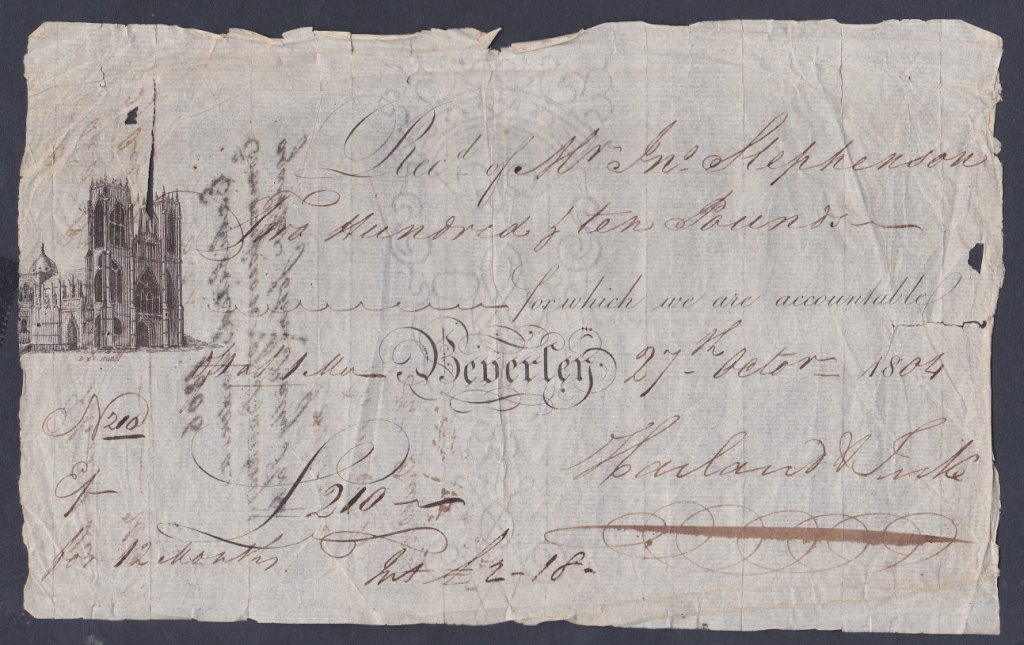 Rec.d of Mr Jno. Stephenson
Two Hundred & ten Pounds
for which we are accountable
Beverley 27th Octor 1804
No 210
Harland & Tuke
£ 210
for 12 Months.
Int £2-18-